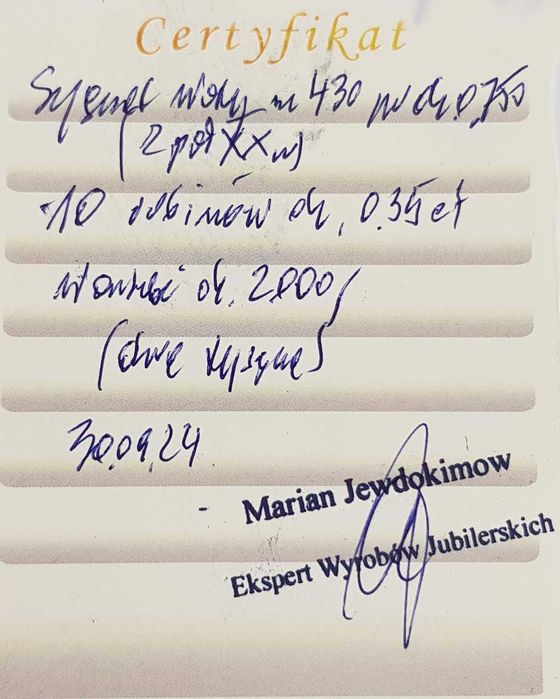 Certyfikat
Sygnet złoty m 430 pr ok. 0,750
(2 poł XX w)
10 rubinów ok. 0.35 ct
Wartość ok. 2000,-
(dwa tysiące)
30.09.24
Marian Jewdokimow
Ekspert Wyrobów Jubilerskich